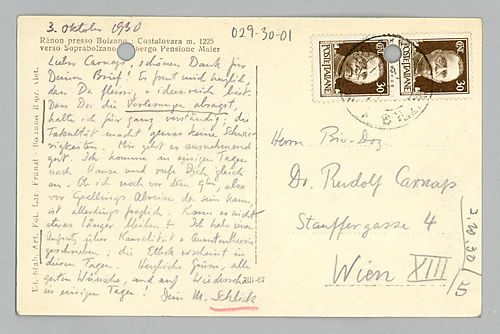 3. Oktober 1930
029-30-01
Rënon presso Bolzano - Costalovara m. 1225
verso Soprabolzano - Albergo Pensione Maier
Lieber Carnap, schönen Dank für
Deinen Brief! Es freut mich herzlich,
dass Du fleissig & ideenreich bist.
Dass Du die Vorlesungen absagst,
halte ich für ganz verständig; die
Fakultät macht gewiss keine Schwie-
rigkeiten. Mir geht es ausnehmend
gut. Ich komme in einigen Tagen
nach Hause und rufe Dich gleich
an. Ob ich noch vor dem 9ten, also
vor Abreise da sein kann,
ist allerdings fraglich. Kann er nicht
etwas länger bleiben? Ich habe einen
Aufsatz über Kausalität & Quantentheorie
geschrieben; die Ethik erscheint in
diesen Tagen. Herzliche Grüsse, alle
guten Wünsche, und auf Wiedersehen
in einigen Tagen! Dein M. Schlick
POSTE ITALIANE
30
POSTE ITALIANE
30
Herrn Priv.-Doz.
Dr. Rudolf Carnap
Stauffergasse 4
Wien XIII
3.10.30/5